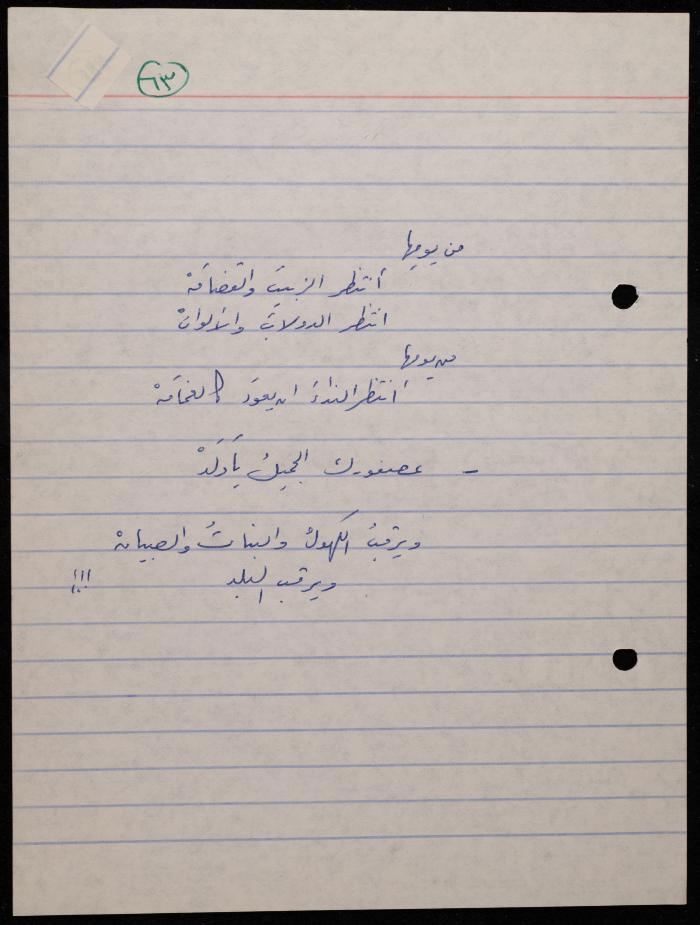 ٦٣
من يومها
أنتظر الزبيبَ والقضامَهْ
انتظر الدولابَ والألوانْ
من يومها
أنتظر النداءَ ان يعودَ
عصفورك الجميلُ يا وَلَدْ –
ويرقبُ الكهولُ والبناتُ والصبيانْ
ويرقب البلد !!!